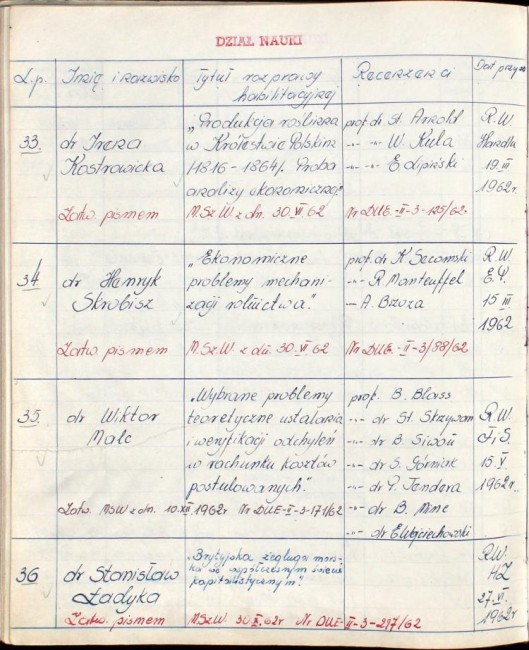 DZIAŁ NAUKI
L.p. Imię i nazwisko Tytuł rozprawy habilitacyjnej Recenzenci Dat. przyzn
33. dr Irena Kostrowicka
„Produkcja roślinna
w Królestwie Polskim
/1816-1864/. Próba
analizy ekonomicznej"
prof. dr St. Arnold
-"- -"- W. Kula
-"- -"- E. Lipiński
R.W.
Handlu
19.III
1962r.
Zatw. pismem M.Sz.W. z dn. 30.VI.62 Nr DUE-II-3-125/62
34. dr Henryk Skrobisz
„Ekonomiczne
problemy mechani-
zacji rolnictwa".
prof. dr K. Secomski
-"- R. Manteuffel
-"- A. Brzoza
R.W.
15.III
1962
Zatw. pismem M.Sz.W. z dn. 30.VI.62 Nr DUE-II-3/88/62
35. dr Wiktor Malc
„Wybrane problemy
teoretyczne ustalania
i weryfikacji odchyleń
w rachunku kosztów
postulowanych".
prof. B. Blass
-"- dr St. Skrzywan
-"- dr B. Siwoń
-"- dr S. Górniak
-"- dr Y. Tendera
-"- dr B. Minc
-"- dr E. Wojciechowski
R.W.
F.i.S.
15.V.
1962r.
Zatw. MSW z dn. 10.XII.1962r Nr DUE-II-3-171/62
36 dr Stanisław Ładyka
„Brytyjska żegluga mors-
ka we współczesnym świecie
kapitalistycznym".
R.W.
HZ
27.VI.
1962r
Zatw. pismem M.Sz.W. 30.X.62r Nr DUE-II-3-217/62